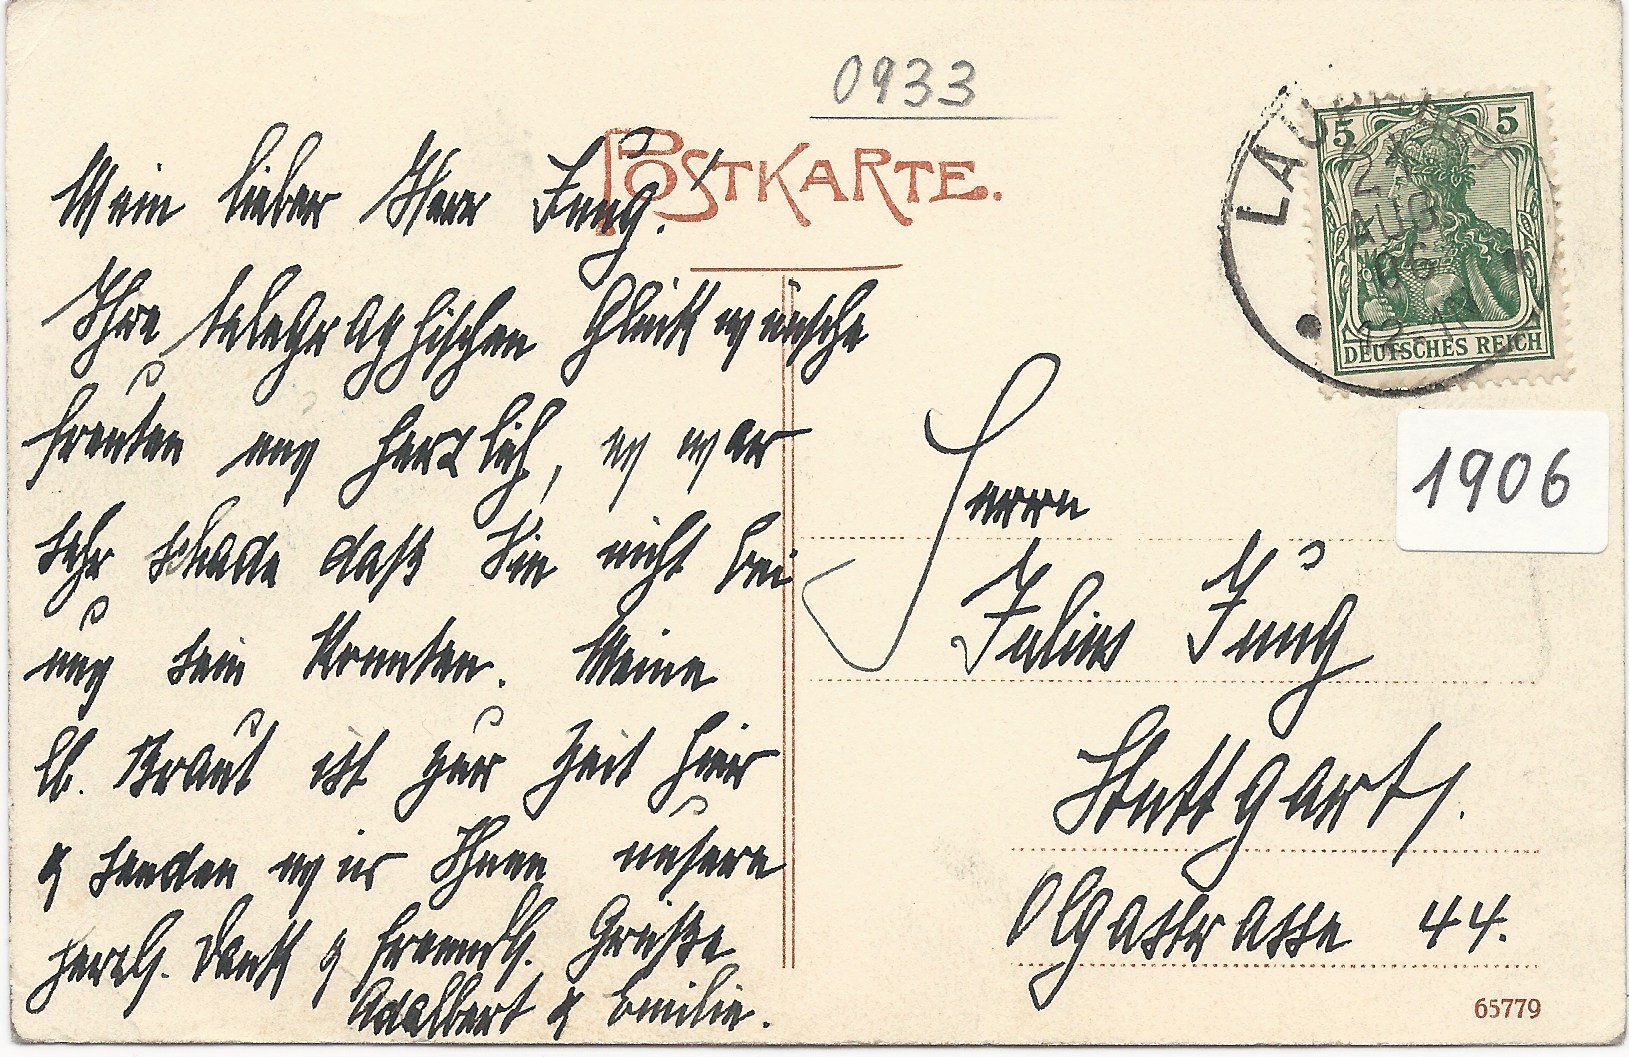 0933
POSTKARTE.
Mein lieber Herr Jung!
Ihre telegraphischen Glückwünsche
freuten uns herzlich, es war
sehr schade daß Sie nicht bei
uns sein konnten. Meine
lb. Braut ist zur Zeit hier
& senden wir Ihnen unsere
herzl. Dank & freundl. Grüße
Adalbert & Emilie.
5 5
21
AUG
06
DEUTSCHES REICH
1906
Herrn
Julius Jung
Stuttgart.
Olgastrasse 44.
65779